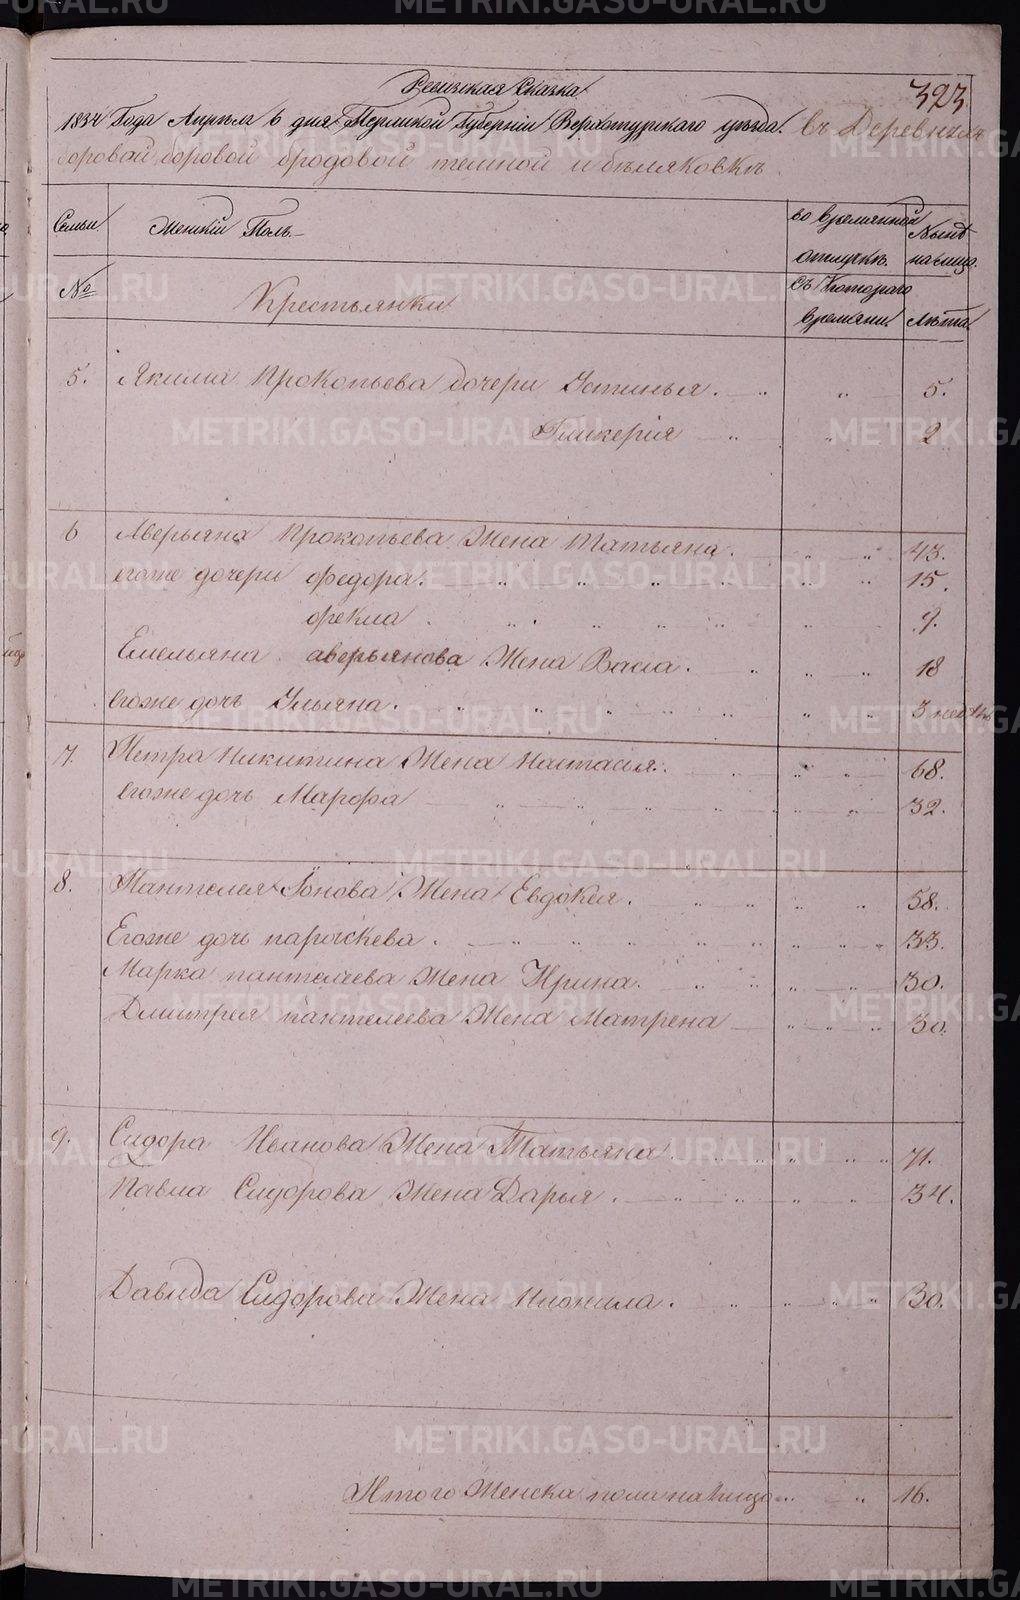 323.
Ревизская Сказка
1834 Года Апреля 6 дня Пермской Губернии Верхотурскаго уезда. въ Деревняхъ
боровой бродовой темной и беляковкъ
Семьи
Женский Полъ
во временной отлучкъ.
Нынъ на лицо.
№
Крестьянки
Съ Котораго времяни.
Лъта.
5. Якима Прокопьева дочери Устинья. 5.
Гликерия 2
6 Аверьяна Прокопьева Жена Татьяна. 43.
егоже дочери федора. 15.
фекла. 9.
Емельяна аверьянова Жена Васса. 18
Егоже дочь Ульяна. 3 нед
7. Петра Никитина Жена Настасья. 68.
Егоже дочь Марфа 32.
8. Пантелея Жена Евдокея. 58.
Егоже дочь парыскева. 33.
Марка пантелеева Жена Ирина. 30.
Дмитрея пантелеева Жена Матрена 30.
9. Сидора Иванова Жена Татьяна. 71.
Павла Сидорова Жена Дарья. 34.
Давыда Сидорова Жена 30.
Итого Женска пола на лицо 16.
METRIKI.GASO-URAL.RU